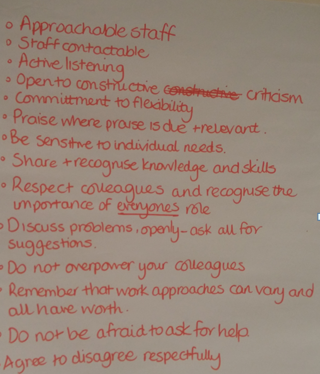 • Approachable staff
• Staff contactable
• Active listening
• Open to constructive constructive criticism
• Committment to flexibility
• Praise where praise is due + relevant.
• Be sensitive to individual needs.
• Share + recognise knowledge and skills
• Respect colleagues and recognise the
importance of everyones role
• Discuss problems, openly - ask all for
suggestions.
• Do not overpower your colleagues
• Remember that work approaches can vary and
all have worth.
• Do not be afraid to ask for help
Agree to disagree respectfully